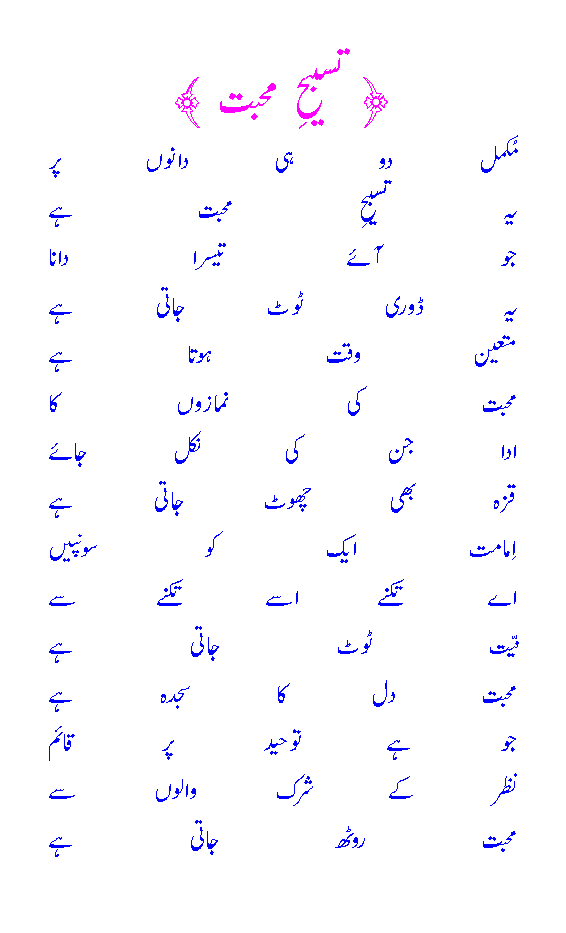 تسبیحِ محبت
مُکمل دو ہی دانوں پر
یہ تسبیحِ محبت ہے
جو آئے تیسرا دانا
یہ ڈوری ٹوٹ جاتی ہے
متعین وقت ہوتا ہے
محبت کی نمازوں کا
ادا جن کی نکل جائے
قزہ بھی چھوٹ جاتی ہے
اِمامت ایک کو سونپیں
اے تکنے اسے تکنے سے
نیّت ٹوٹ جاتی ہے
محبت دل کا سجدہ ہے
جو ہے توحید پر قائم
نظر کے شرک والوں سے
محبت روٹھ جاتی ہے